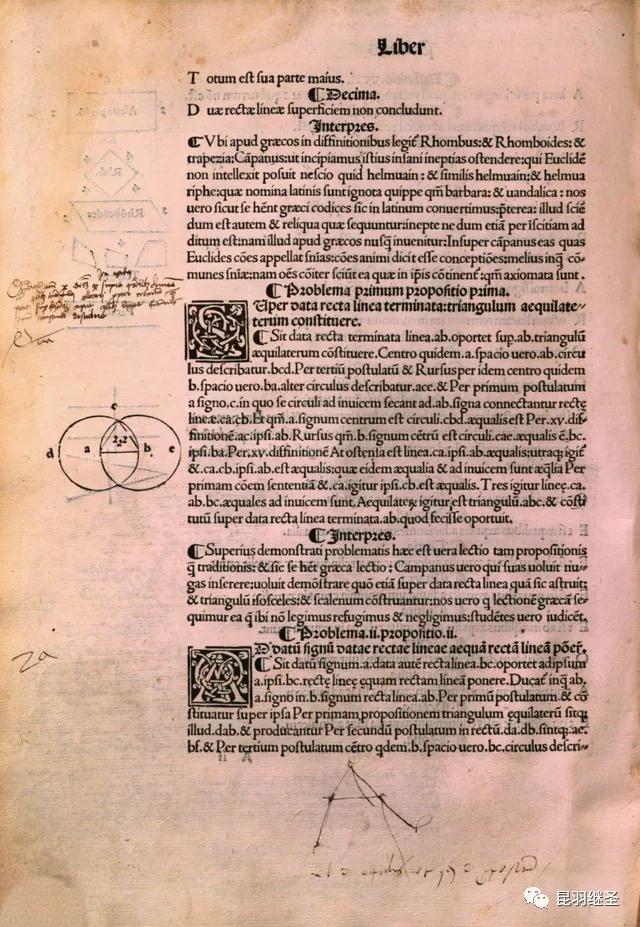 Liber
Totum est sua parte maius.
¶Decima.
Duæ rectæ lineæ superficiem non concludunt.
Interpres.
¶Vbi apud græcos in diffinitionibus legit̃ Rhombus:& Rhomboides:&
trapezia:Cāpanus:ut incipiamus istius insani ineptias ostendere:qui Euclidē
non intellexit posuit nescio quid helmuain:& similis helmuain:& helmua
riphe:quæ nomina latinis sunt ignota quippe qm̄ barbara:& uandalica:nos
uero sicut se hēnt græci codices sic in latinum conuertimus:p̄terea:illud sciē
dum est autem & reliqua quæ sequuntur:inepte ne dum etiā per iscitiam ad
ditum est:nam illud apud græcos nusq̄ inuenitur:Insuper cāpanus eas quas
Euclides cōes appellat sn̄ias:cōes animi dicit esse conceptiōes:melius inq̄ cō
munes sn̄iæ:nam oēs cōiter sciūt ea quæ in ip̄is cōtinent̃:qm̄ axiomata sunt.
¶Problema primum propositio prima.
SUper data recta linea terminata:triangulum aequilate-
terum constituere.
¶Sit data recta terminata linea.ab.oportet sup.ab.triangulū
æquilaterum cōstituere.Centro quidem.a.spacio uero.ab.circu
lus describatur.bcd.Per tertiū postulatū & Rursus per idem centro quidem
b.spacio uero.ba.alter circulus describatur.ace.& Per primum postulatum
a signo.c.in quo se circuli ad inuicem secant ad.ab.signa connectantur rectę
lineæ.ca.cb.Et qm̄.a.signum centrum est circuli.cbd.æqualis est Per.xv.dif-
finitionē.ac.ipsi.ab.Rursus qm̄.b.signum cētrū est circuli.cae.æqualis ē.bc.
ipsi.ba.Per.xv.diffinitionē At ostensa est linea.ca.ipsi.ab.æqualis:utraq; igit̃
&.ca.cb.ipsi.ab.est æqualis:quæ eidem æqualia & ad inuicem sunt æq̄lia Per
primam cōem sententiā &.ca.igitur ipsi.cb.est æqualis.Tres igitur lineę.ca.
ab.bc.æquales ad inuicem sunt.Aequilaterū igitur est triangulū.abc.& cōsti
tutū super data recta linea terminata.ab.quod fecisse oportuit.
c
d a b e
¶Interpres.
¶Superius demonstrati problematis hæc est uera lectio tam propositionis
q̄ traditionis:& sic se hēt græca lectio:Campanus uero qui suas uoluit nu-
gas inserere:uoluit demōstrare quō etiā super data recta linea quā sic astruit:
& triangulū isosceles:& scalenum cōstruantur:nos uero q lectionē græcā se-
quimur ea q̄ ibi nō legimus refugimus & negligimus:studētes uero iudicēt.
¶Problema.ii.propositio.ii.
AD datū signū datae rectae lineae aequā rectā lineā pōer̄.
¶Sit datū signum.a.data autē recta linea.bc.oportet ad ipsum
.a.ipsi.bc.rectę lineę equam rectam lineā ponere.Ducat̃ inq̄ ab.
.a.signo in.b.signum recta linea.ab.Per primū postulatum & cō
stituatur super ipsa Per primam propositionem triangulum ęquilaterū sitq;
illud.dab.& producantur Per secundū postulatum in rectū.da.db.sintq;:ae.
bf.& Per tertium postulatum cētro qdem.b.spacio uero.bc.circulus descri-
昆羽继圣